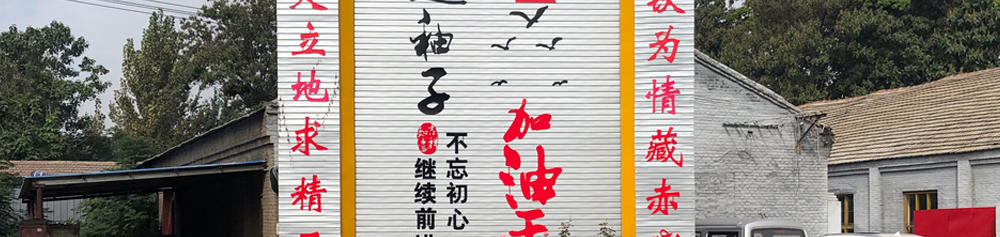 立地求精
袖子
不忘初心
继续前进
加油干
为情藏赤